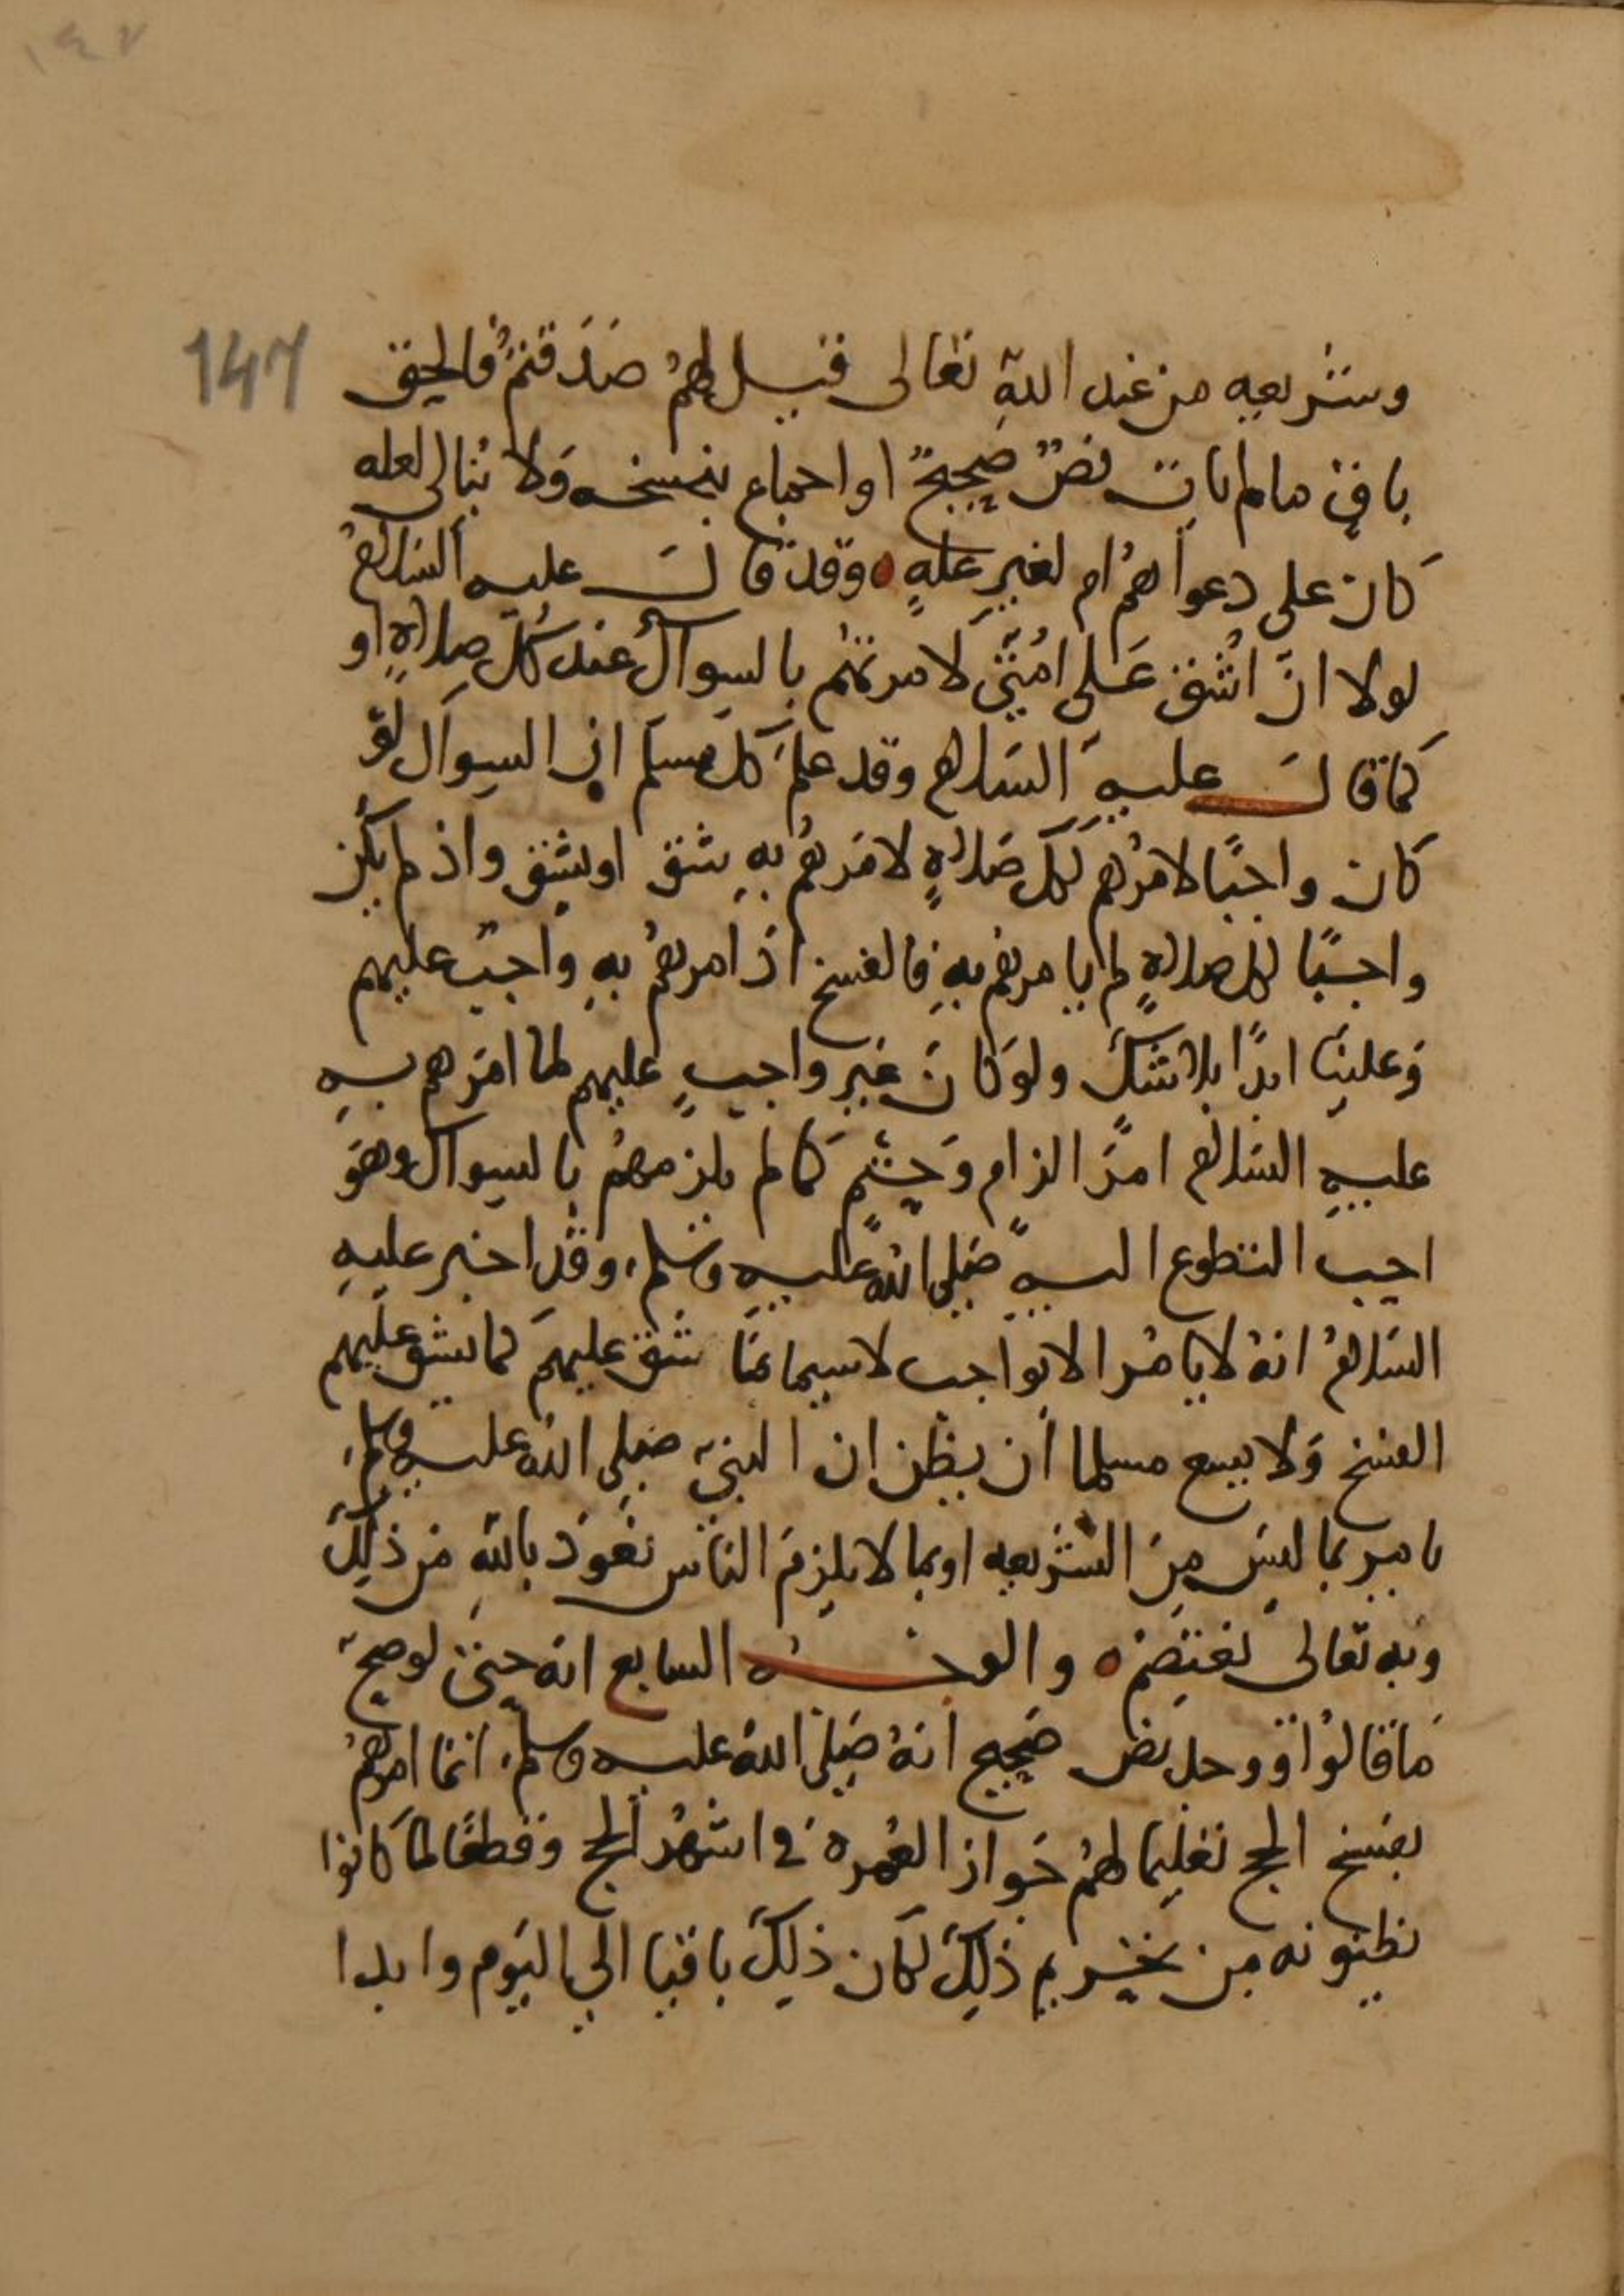 ١٤٧
147
وشريعه من عند الله تعالى فقيل لهم صدقتم فالحق
باقٍ ما لم يات نص صحيح او اجماع بنسخه ولا نبالى لعله
كان على دعواهم ام لغير عله وقد قال عليه السلام
لولا ان اشق على امتى لامرتهم بالسواك عند كل صلاه او
كما قال عليه السلام وقد علم كل مسلم ان السواك لو
كان واجبًا لامرهم لكل صلاه لامرهم به شق او لم يشق واذ لم يكن
واجبًا لكل صلاه لم يامرهم به فالفسخ اذ امرهم به واجب عليهم
وعلينا ابدًا بلا شك ولو كان غير واجب عليهم لما امرهم به
عليه السلام امر الزام وحتم كما لم يلزمهم بالسواك وهو
احب التطوع اليه صلى الله عليه وسلم، وقد اخبر عليه
السلام انه لا يامر الا بواجب لا سيما بما شق عليهم كما شق عليهم
الفسخ ولا يسع مسلما ان يظن ان النبى صلى الله عليه وسلم،
يامر بما ليس من الشريعه او بما لا يلزم الناس نعوذ بالله من ذلك
وبه تعالى نعتصم ه والوجه السابع انه حتى لو صح
ما قالوا ووجد نص صحيح انه صلى الله عليه وسلم، انما امرهم
بفسخ الحج تعليما لهم جواز العمره فى اشهر الحج وقطعًا لما كانوا
يظنونه من تحريم ذلك لكان ذلك باقيا الى اليوم وابدا